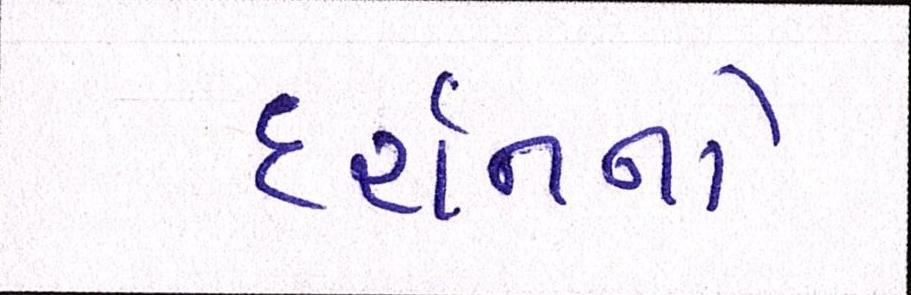 દર્શનનો